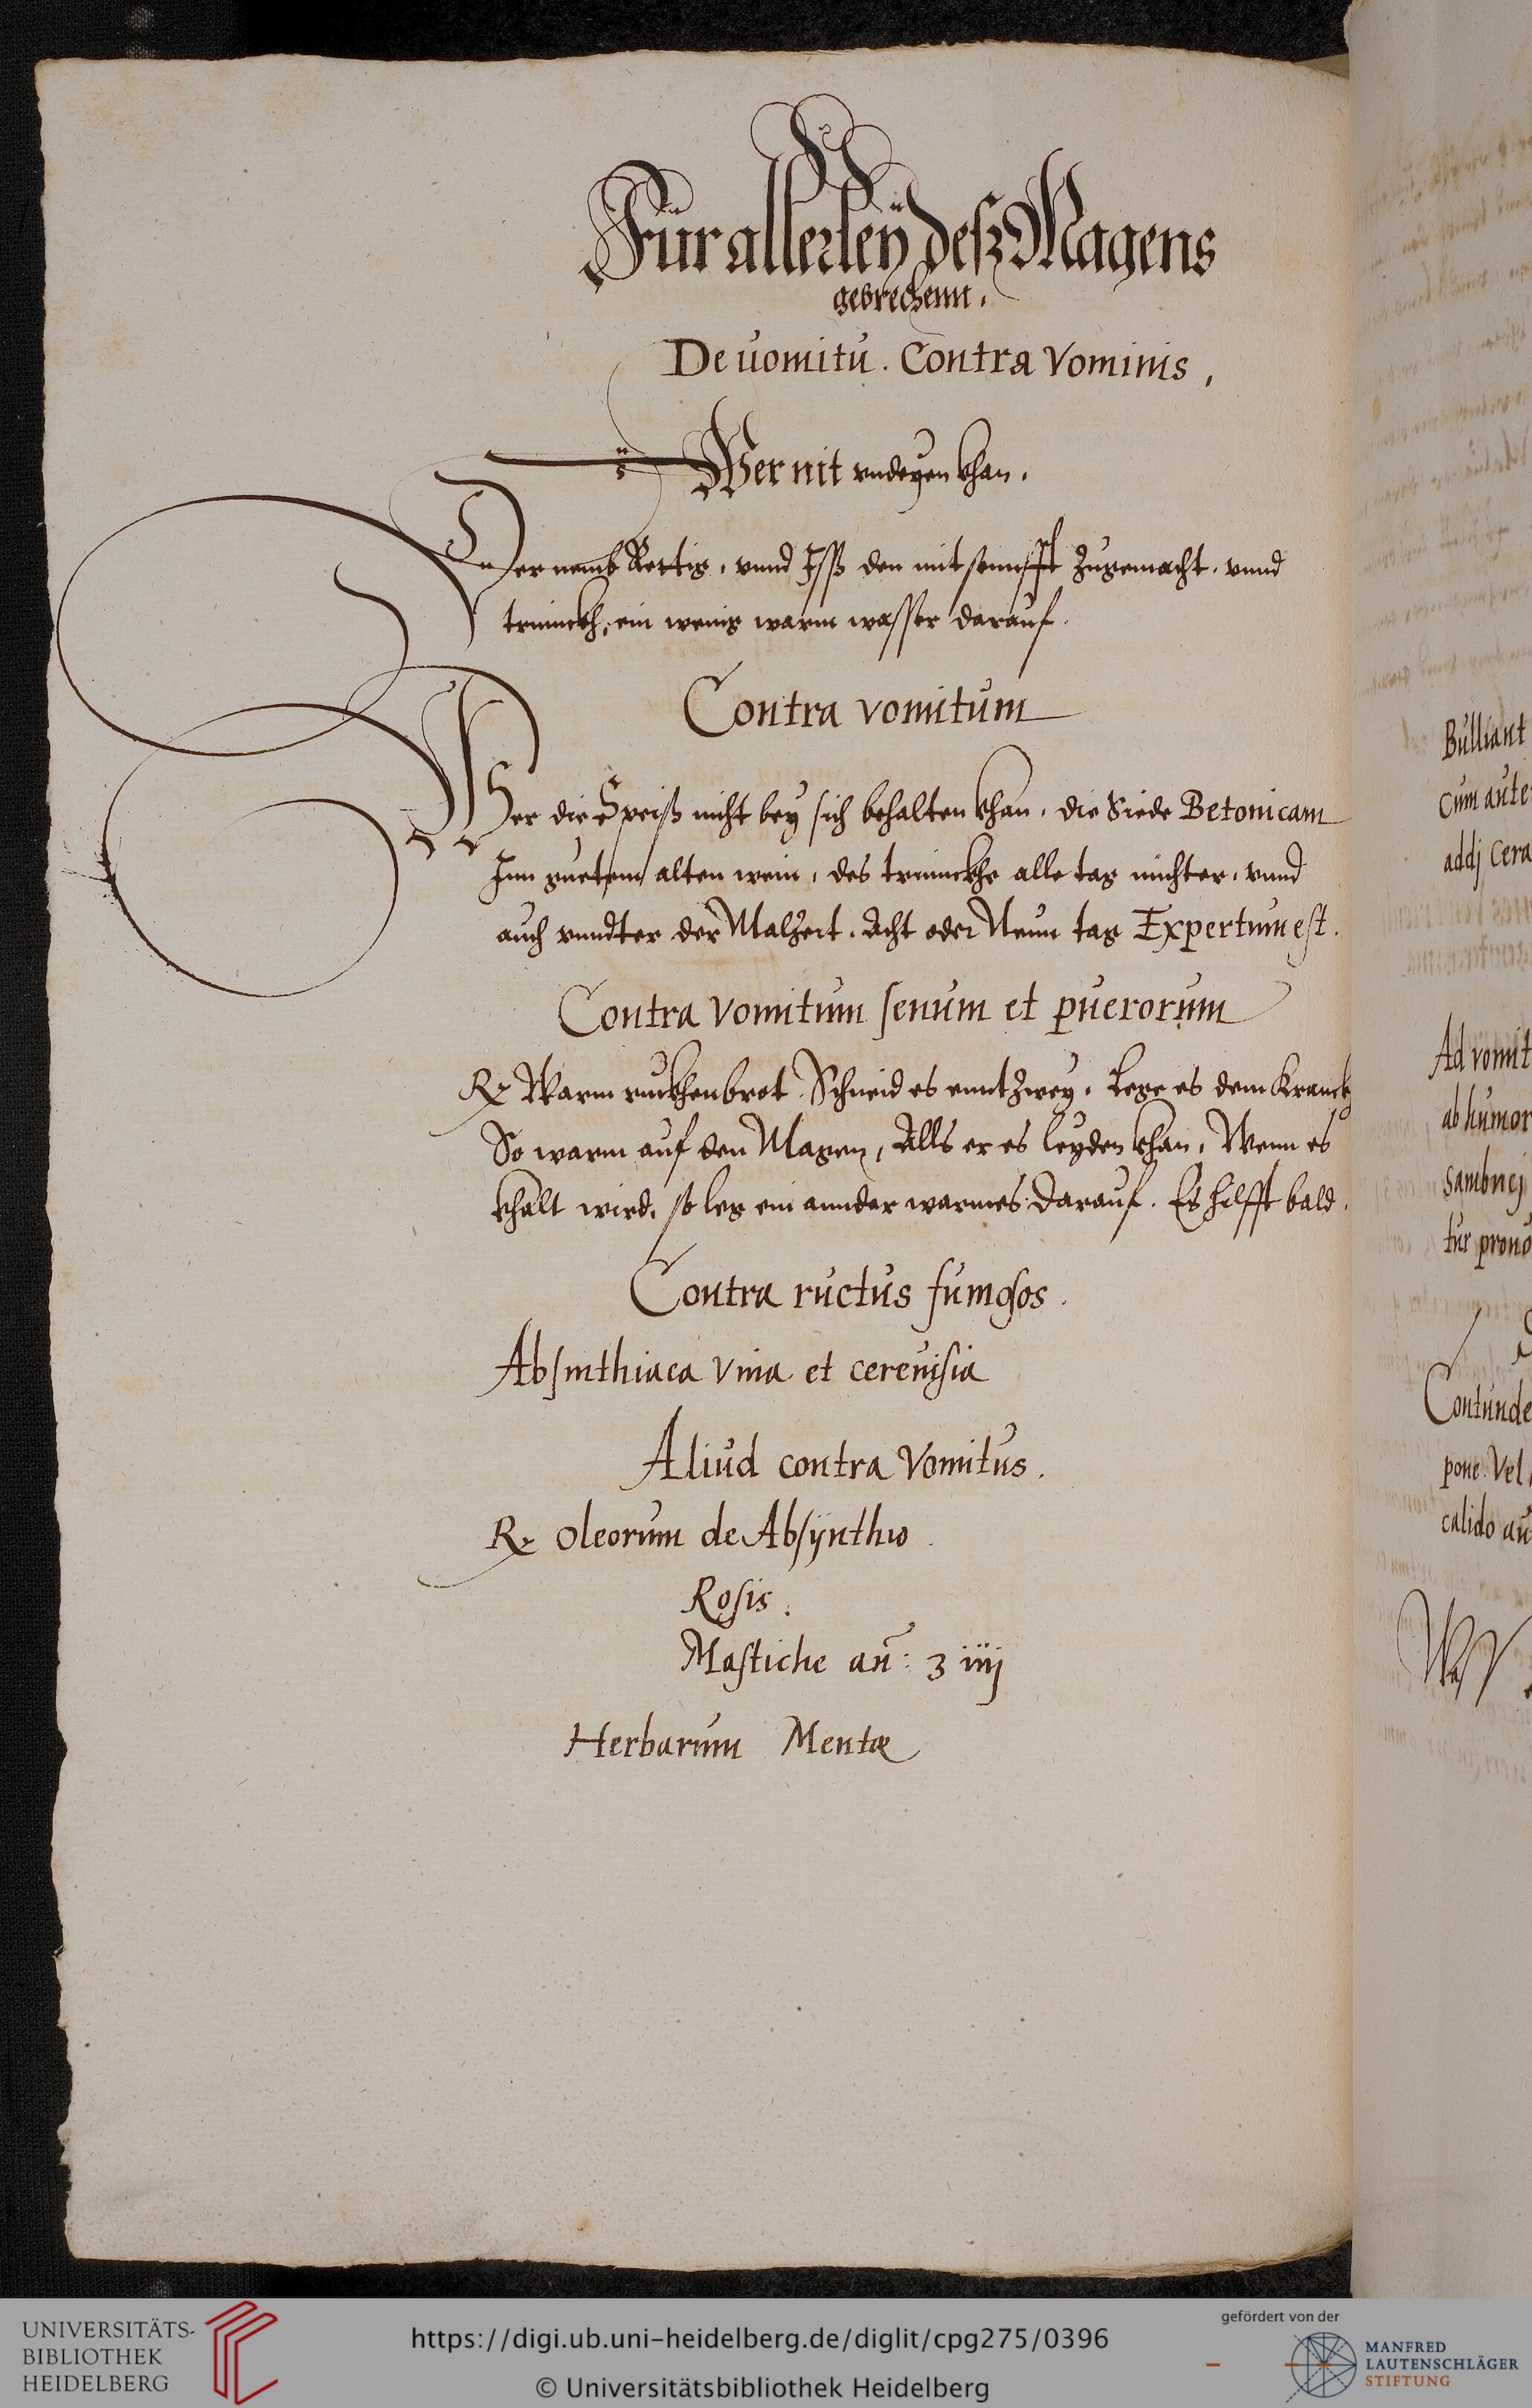 Für allerley desz Magens
gebrechenn.
De uomitu. Contra Vominis,
Wer nit vndeyen khan.
Der nemb Rettig, vnnd Iss den mit sennfft zugemacht, vnnd
trinnckh, ein wenig warm wasser darauf.
Contra vomitum
Wer die Speiß nicht bey sich behalten khan, die Siede Betonicam
Inn guetem alten wein, des trinnckhe alle tag nüchter, vnnd
auch vnndter der Malzeit. Acht oder Neun tag Expertum est.
Contra Vomitum senum et puerorum
Rx Warm ruckhenbrot. Schneid es enntzwey. Lege es dem Kranckh
So warm auf den Magen, Alls er es leyden khan, Wenn es
khalt wird, so leg ein annder warmes darauf. Es hilfft bald.
Contra ructus fumosos.
Absinthiaca Vina et cereuisia
Aliud contra Vomitus.
Rx Oleorum de Absÿnthio.
Rosis.
Mastiche añ: ʒ iiij
Herbarum Mentæ
Bulliant
Cum aute
addj Cera
Ad vomit
ab humor
Sambucj
tur prono
Contunde
pone. Vel
calido au
UNIVERSITÄTS-
BIBLIOTHEK
HEIDELBERG
https://digi.ub.uni-heidelberg.de/diglit/cpg275/0396
© Universitätsbibliothek Heidelberg
gefördert von der
MANFRED
LAUTENSCHLÄGER
STIFTUNG